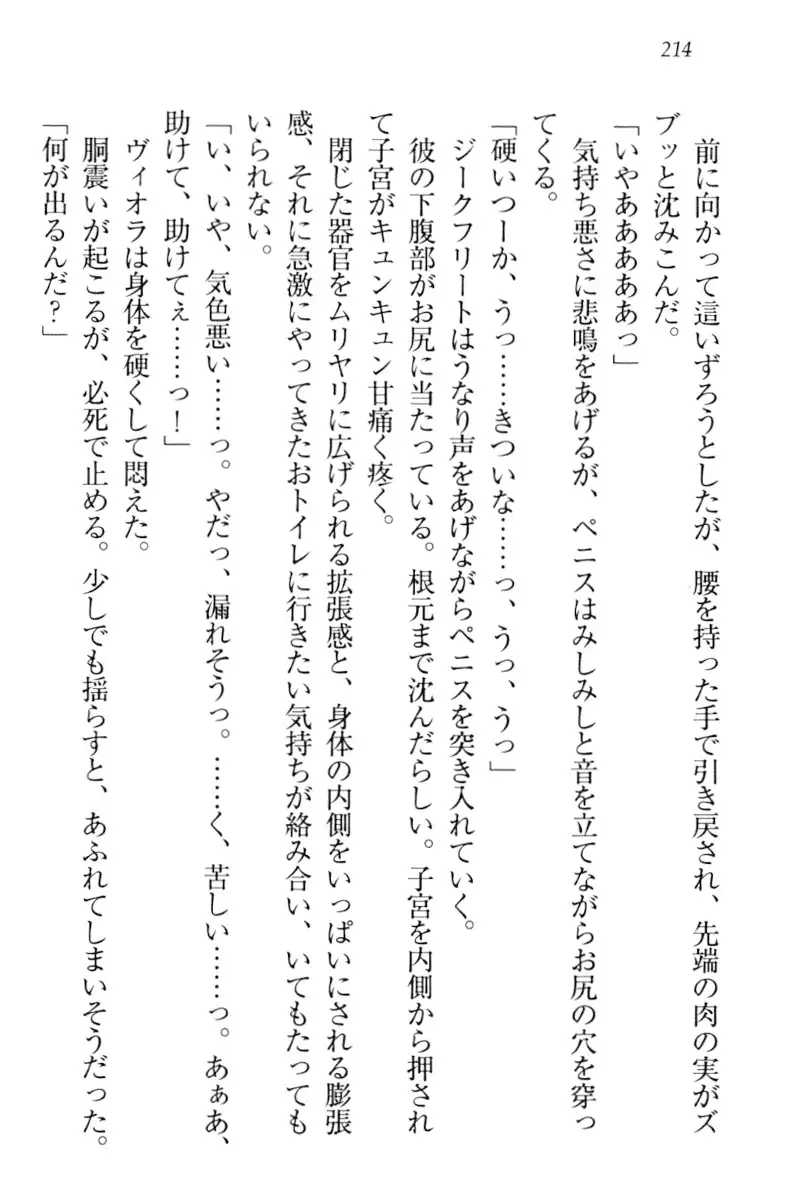 214
前に向かって這いずろうとしたが、腰を持った手で引き戻され、先端の肉の実がズ
ブッと沈みこんだ。
「いやああああぁっ」
気持ち悪さに悲鳴をあげるが、ペニスはみしみしと音を立てながらお尻の穴を穿っ
てくる。
「硬いつーか、うっ……きついな……っ、うっ、うっ」
ジークフリートはうなり声をあげながらペニスを突き入れていく。
彼の下腹部がお尻に当たっている。根元まで沈んだらしい。子宮を内側から押され
て子宮がキュンキュン甘痛く疼く。
閉じた器官をムリヤリに広げられる拡張感と、身体の内側をいっぱいにされる膨張
感、それに急激にやってきたおトイレに行きたい気持ちが絡み合い、いてもたっても
いられない。
「い、いや、気色悪い……っ。やだっ、漏れそうっ。……く、苦しい……っ。あぁあ、
助けて、助けてぇ……っ！」
ヴィオラは身体を硬くして悶えた。
胴震いが起こるが、必死で止める。少しでも揺らすと、あふれてしまいそうだった。
「何が出るんだ？」